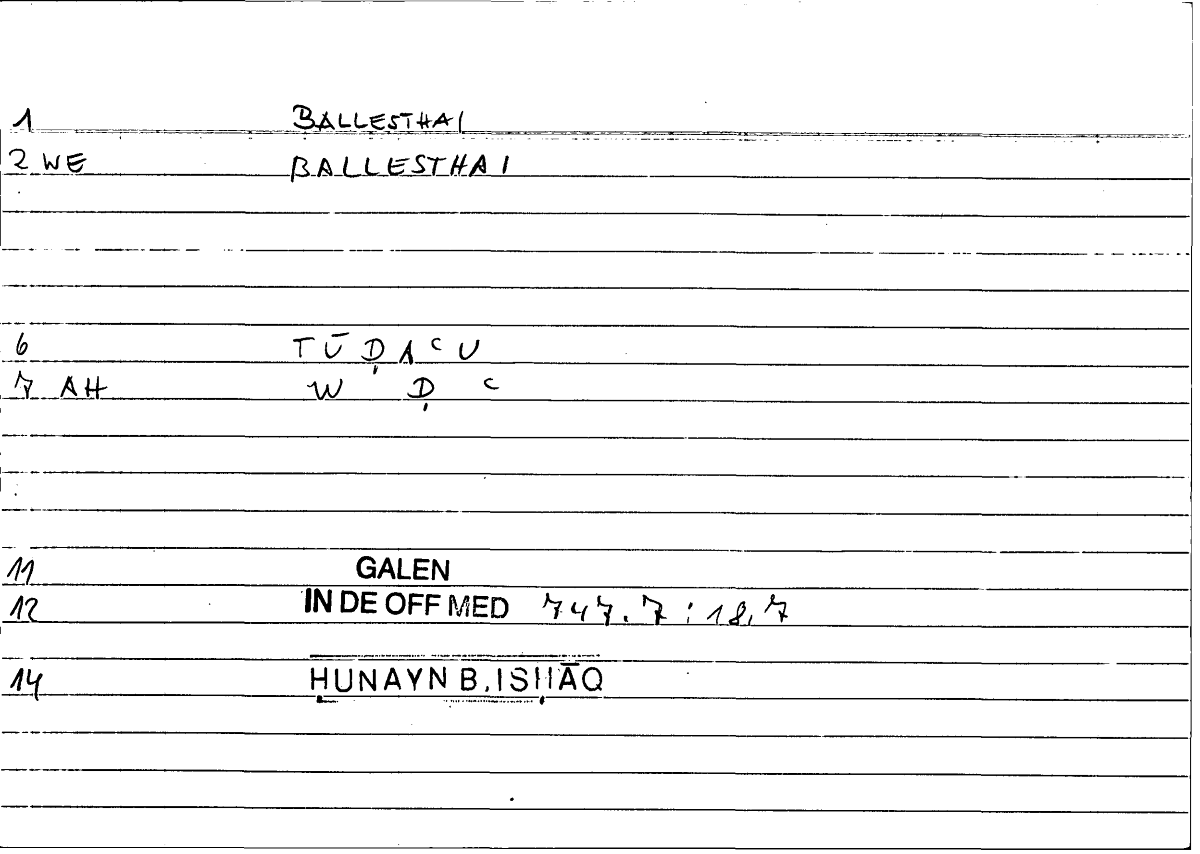 1 BALLESTHAI
2 WE BALLESTHAI
6 TŪḌAʿU
7 AH W Ḍ ʿ
11 GALEN
12 IN DE OFF MED 747.7 : 18.7
14 ḤUNAYN B. ISḤĀQ